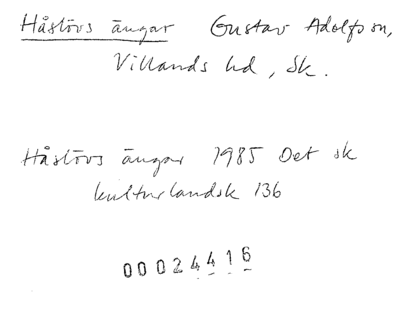 Håslövs ängar Gustav Adolfs sn,
Villands hd, Sk.
Håslövs ängar 1985 Det sk
kulturlandsk 136
00024416